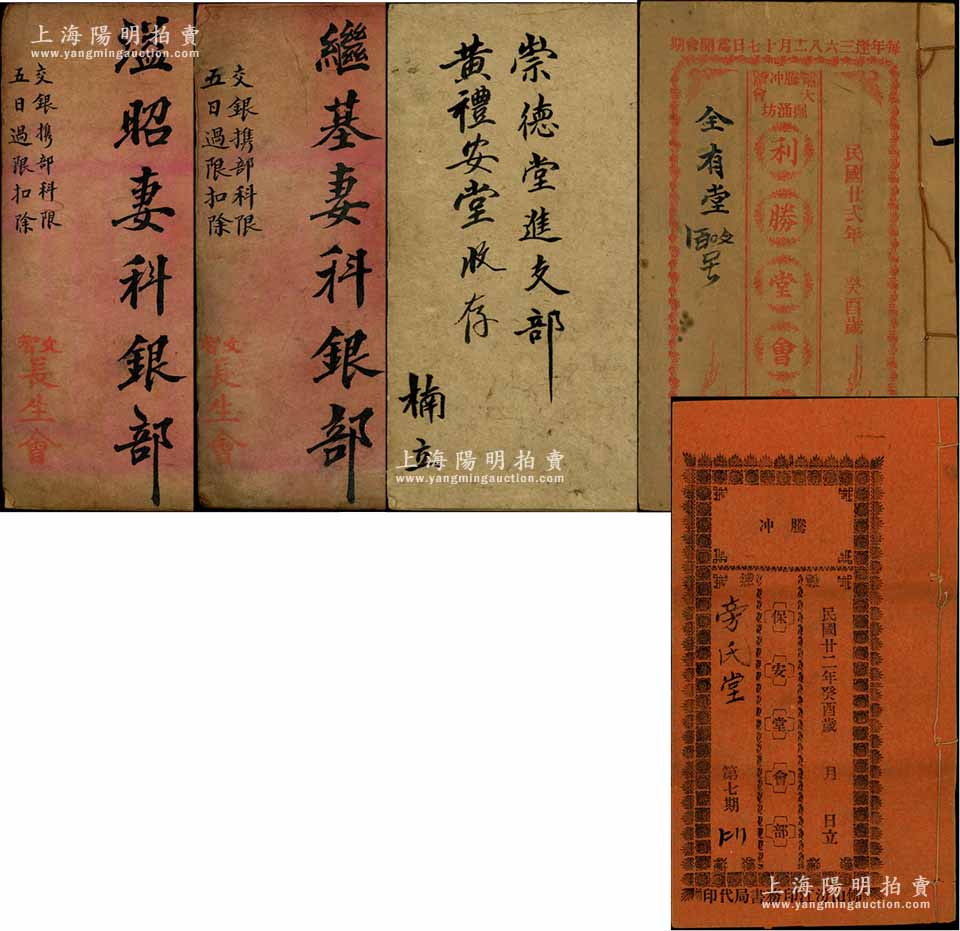 上海陽明拍賣
www.yangmingauction.com
溢昭妻科銀部
交銀携部科限
五日過限扣除
長生會
繼基妻科銀部
交銀携部科限
五日過限扣除
長生會
崇德堂進支部
黃禮安堂收存
楠立
上海陽明拍賣
www.yangmingauction.com
上海陽明拍賣
www.yangmingauction.com
每年逢三六八十二月十七日爲開會期
民國廿弍年 癸酉歲
利勝堂會
全有堂
騰冲
民國廿二年癸酉歲 月 日立
保安堂會部
旁氏堂 第七期
上海陽明拍賣
www.yangmingauction.com
書局代印